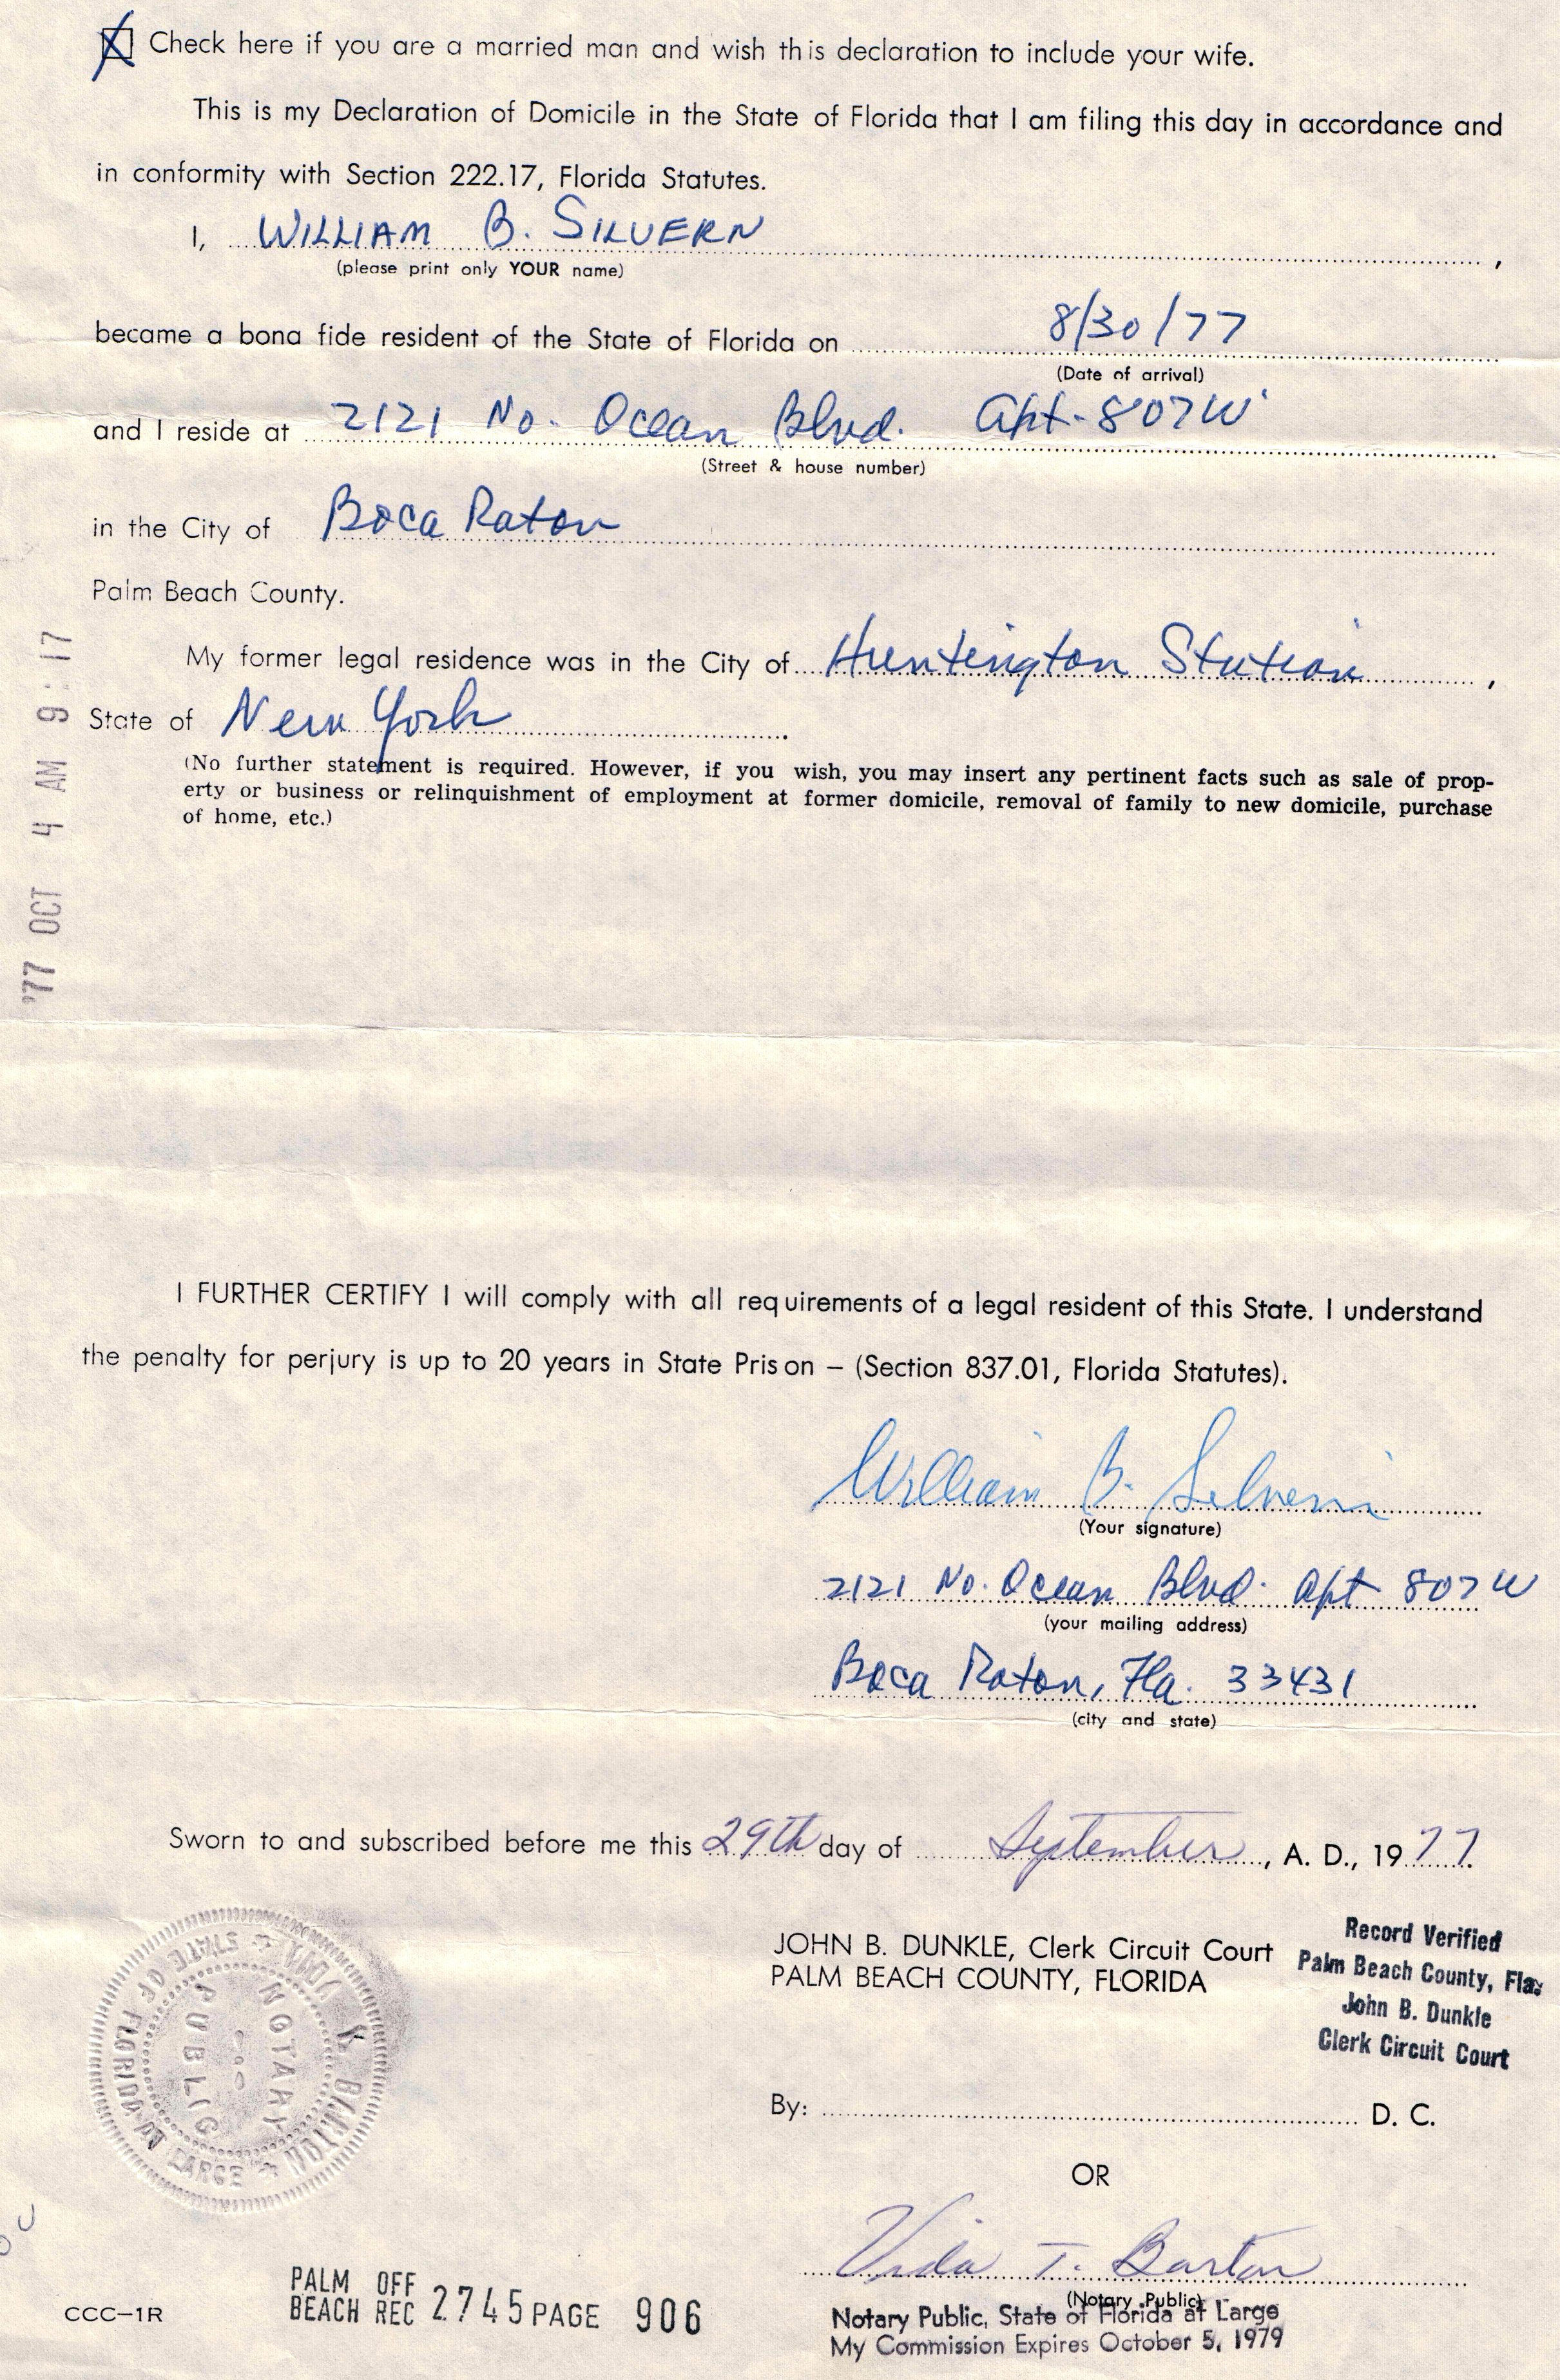 Check here if you are a married man and wish this declaration to include your wife.
This is my Declaration of Domicile in the State of Florida that I am filing this day in accordance and
in conformity with Section 222.17, Florida Statutes.
I, WILLIAM B. SILVERN ,
(please print only YOUR name)
became a bona fide resident of the State of Florida on 8/30/77
(Date of arrival)
and I reside at 2121 No. Ocean Blvd. Apt. 807W
(Street & house number)
in the City of Boca Raton
Palm Beach County.
My former legal residence was in the City of Huntington Station ,
State of New York .
(No further statement is required. However, if you wish, you may insert any pertinent facts such as sale of prop-
erty or business or relinquishment of employment at former domicile, removal of family to new domicile, purchase
of home, etc.)
'77 OCT 4 AM 9:17
I FURTHER CERTIFY I will comply with all requirements of a legal resident of this State. I understand
the penalty for perjury is up to 20 years in State Prison – (Section 837.01, Florida Statutes).
William B. Silvern
(Your signature)
2121 No. Ocean Blvd. Apt 807W
(your mailing address)
Boca Raton, Fla. 33431
(city and state)
Sworn to and subscribed before me this 29th day of September, A. D., 1977.
JOHN B. DUNKLE, Clerk Circuit Court
PALM BEACH COUNTY, FLORIDA
Record Verified
Palm Beach County, Fla.
John B. Dunkle
Clerk Circuit Court
By: D. C.
OR
NOTARY
PUBLIC
STATE OF FLORIDA AT LARGE
Vida T. Barton
(Notary Public)
Notary Public, State of Florida at Large
My Commission Expires October 5, 1979
PALM BEACH OFF REC 2745 PAGE 906
CCC–1R